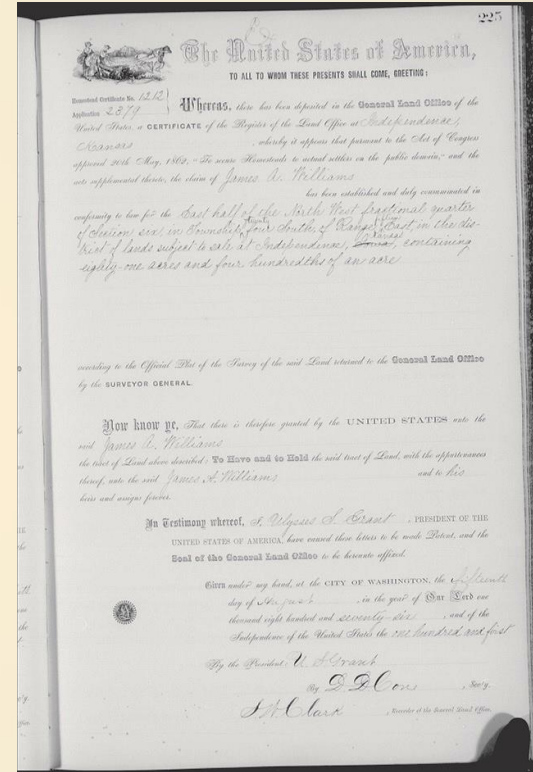 225
The United States of America,
TO ALL TO WHOM THESE PRESENTS SHALL COME, GREETING:
Homestead Certificate No. 1212
Application 2379
Whereas, there has been deposited in the General Land Office of the
United States a CERTIFICATE of the Register of the Land Office at Independence,
Kansas, whereby it appears that pursuant to the Act of Congress
approved 20th May, 1862, "To secure Homesteads to actual settlers on the public domain," and the
acts supplemental thereto, the claim of James A. Williams
has been established and duly consummated in
conformity to law for the East half of the North West fractional quarter
of Section six, in Township thirty four South, of Range East, in the dis-
trict of lands subject to sale at Independence, Kansas, containing
eighty-one acres and four hundredths of an acre
according to the Official Plat of the Survey of the said Land returned to the General Land Office
by the SURVEYOR GENERAL.
Now know ye, That there is therefore granted by the UNITED STATES unto the
said James A. Williams
the tract of Land above described: To Have and to Hold the said tract of Land, with the appurtenances
thereof, unto the said James A Williams and to his
heirs and assigns forever.
In Testimony whereof, I, Ulysses S. Grant, PRESIDENT OF THE
UNITED STATES OF AMERICA, have caused these letters to be made Patent, and the
Seal of the General Land Office to be hereunto affixed.
Given under my hand, at the CITY OF WASHINGTON, the fifteenth
day of August, in the year of Our Lord one
thousand eight hundred and seventy-six, and of the
Independence of the United States the one hundred and first
By the President: U S Grant
By D. D. Cone, Sec'y.
S. W. Clark, Recorder of the General Land Office.